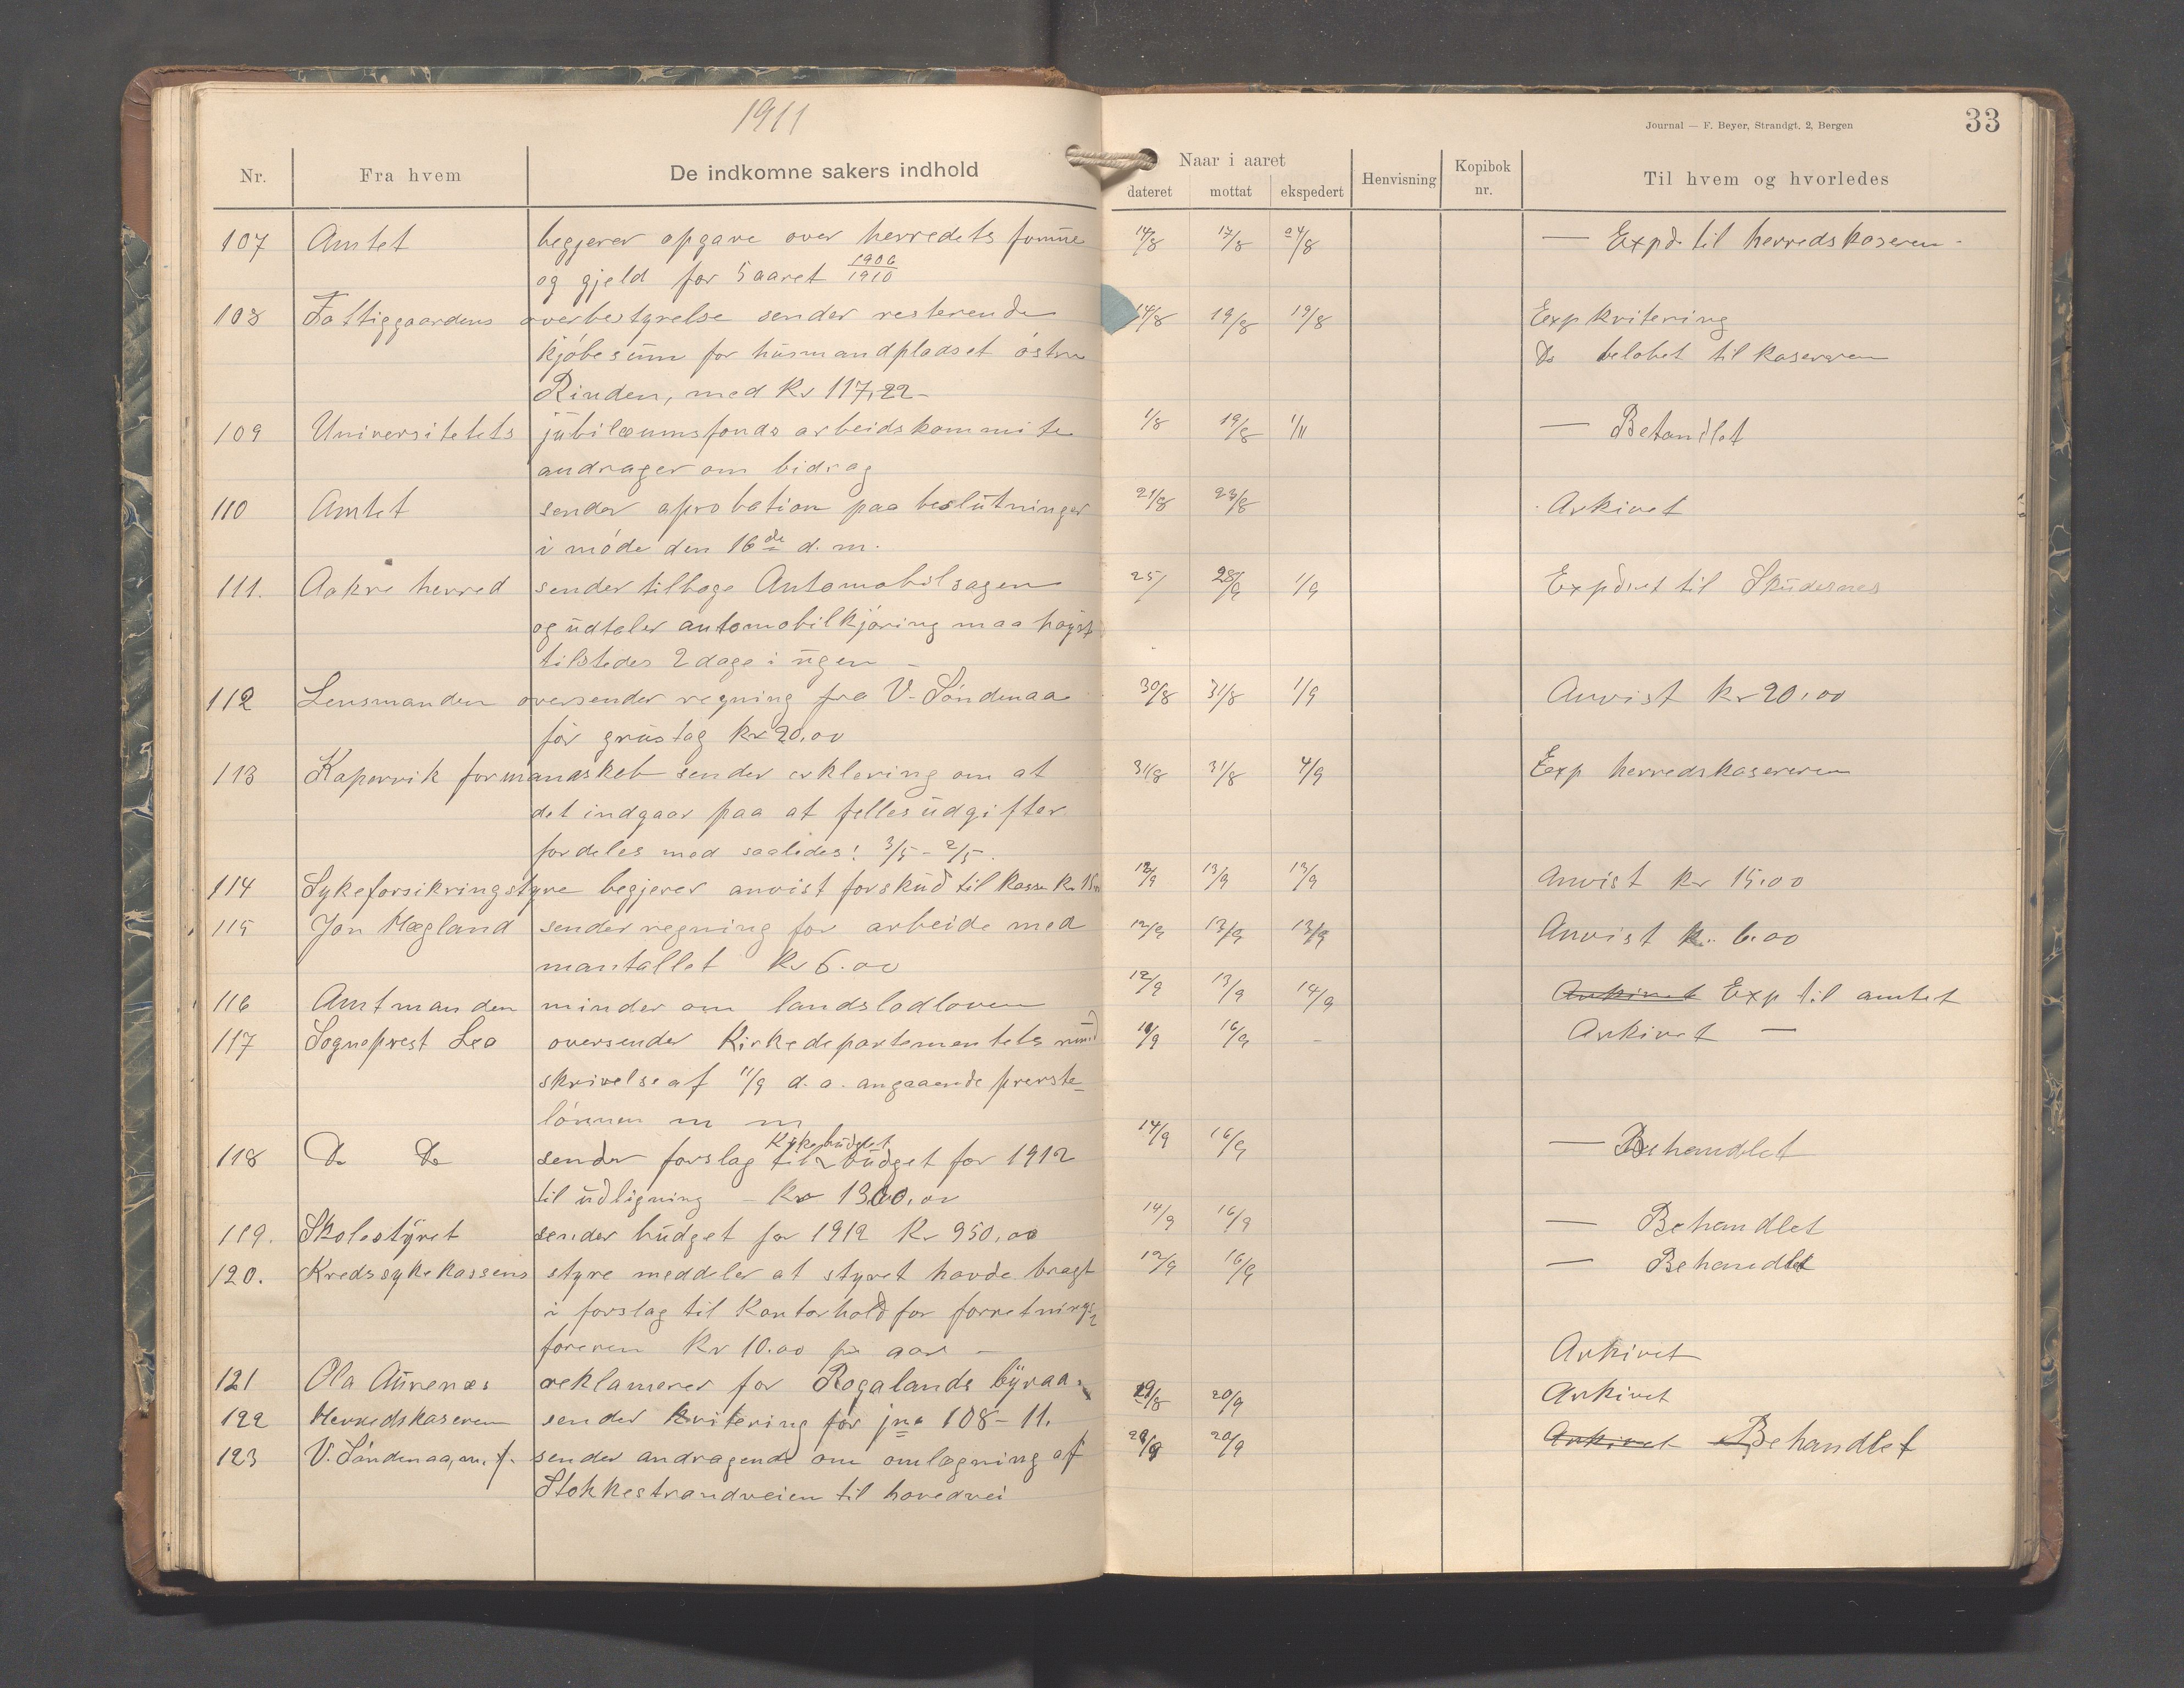 1911
Journal — F. Beyer, Strandgt. 2, Bergen
33
Nr. Fra hvem De indkomne sakers indhold Naar i aaret dateret mottat ekspedert Henvisning Kopibok nr. Til hvem og hvorledes
107 Amtet begjerer opgave over herredets formue 14/8 17/8 24/8 — Expd. til herredskaseren -
og gjeld for 5 aaret 1906/1910
108 Fattiggaardens overbestyrelse sender resterende 14/8 19/8 19/8 Exp kvitering
kjøbesum for husmandpladset østre Do beløbet til kasereren
Rinden, med Kr 117,22 -
109 Universitetets jubilæumsfonds arbeidskommite 1/8 19/8 1/11 — Behandlet
andrager om bidrag
110 Amtet sender aprobation paa beslutninger 21/8 23/8 Arkivet
i møde den 16de d. m.
111. Aakre herred sender tilbage Automobilsagen 25/ 28/9 1/9 Expdret til Skudesnes
og udtaler automobilkjøring maa høyst
tilstedes 2 dage i ugen —
112 Lensmanden oversender regning fra V. Søndenaa 30/8 31/8 1/9 Anvist kr 20,00
for grustag Kr 20,00
113 Kopervik formandskab sender erklering om at 31/8 31/8 4/9 Exp herredskasereren
det indgaar paa at felles udgifter
fordeles med saaledes! 3/5 - 2/5.
114 Sykeforsikringstyre begjerer anvist forskud til kasse Kr 15,00 12/9 13/9 13/9 Anvist kr 15,00
115 Jon Hægland sender regning for arbeide med 12/9 13/9 13/9 Anvist kr. 6.00
mantallet Kr 6.00
116 Amtmanden minder om landslodloven 12/9 13/9 14/9 Arkivet Exp til amtet
117 Sogneprest Lea oversender Kirkedepartementets rund 16/9 - Arkivet —
skrivelse af 11/9 d. a. angaaende preste-
lønnen m m
118 Do Do sender forslag til Kirkebudget budget for 1912 14/9 16/9 — Behandlet
til udligning - Kr 1300,00
119. Skolestyret sender budget for 1912 Kr 950,00 14/9 16/9 — Behandlet
120. Kredssykekassens styre meddeler at styret havde bragt 12/9 16/9 — Behandlet
i forslag til Kontorhold for forretnings-
føreren Kr 10.00 pr aar —
121 Ola Aurenes reklamerer for Rogalands byraa. Arkivet
122 Herredskaseren sender kvitering for jno 108-11. 29/8 20/9 Arkivet
123 V. Søndenaa, m. f. sender andragende om omlægning af 20/9 Arkivet Behandlet
Stokkestrandveien til hovedvei